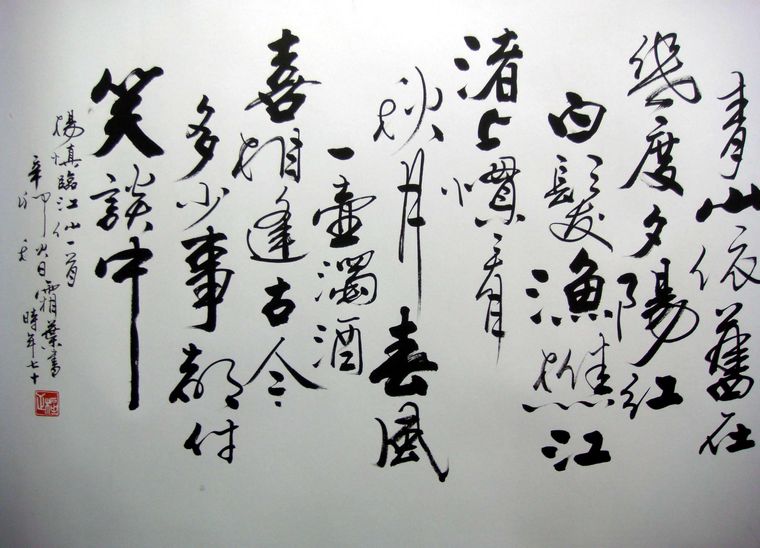 青山依舊在
幾度夕陽紅
白髮漁樵江
渚上慣看
秋月春風
一壺濁酒
喜相逢古今
多少事都付
笑談中
楊慎臨江仙一首
辛卯秋日霜葉書
時年七十